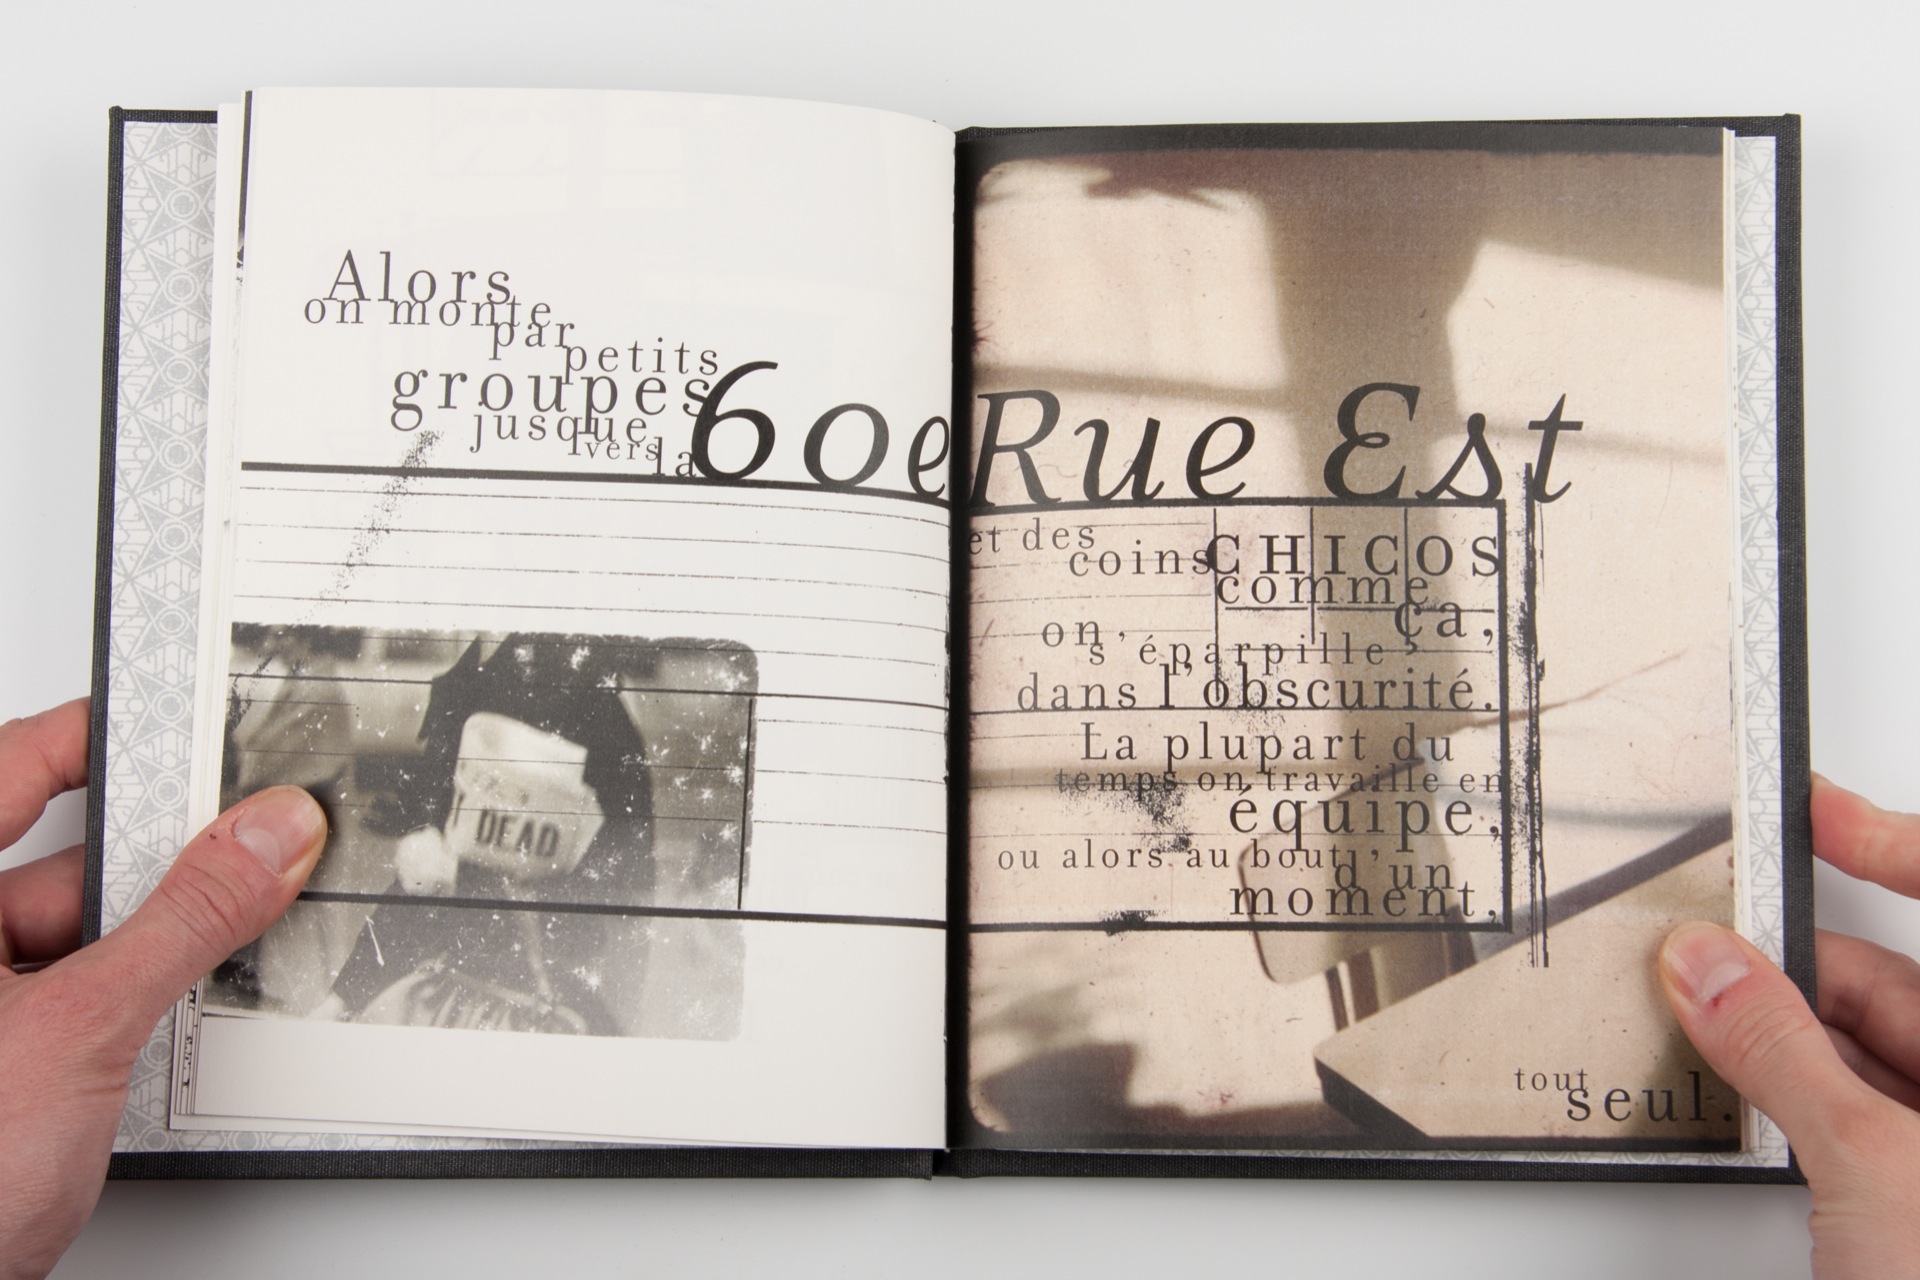 Alors
on monte
par
petits
groupes
jusque
vers
la
60e Rue Est
et des
coins CHICOS
comme
ça,
on
s'éparpille
dans l'obscurité.
La plupart du
temps on travaille en
équipe,
ou alors au bout
d'un
moment,
tout
seul.
DEAD